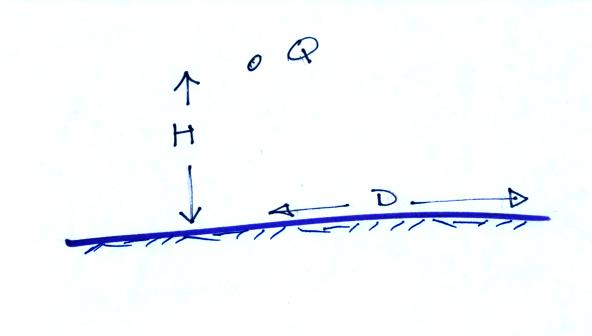 Q
H
D